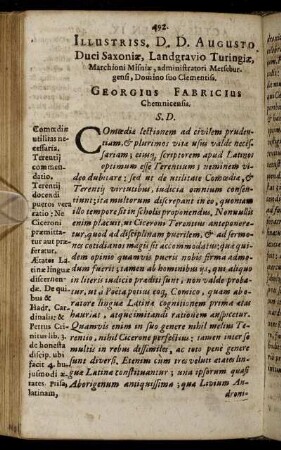 492.
ILLUSTRISS. D. D. AUGUSTO
Duci Saxoniæ, Landgravio Turingiæ,
Marchioni Misniæ, administratori Merseburgensi, Domino suo Clementiss.
GEORGIUS FABRICIUS
Chemnicensis.
S. D.
Comœdiæ
utilitas necessaria,
Terentij
commendatio.
Terentij
docendi
pueros vera
ratio: Ne
Ciceroni
præmittatur aut præferatur.
Ætates Latinæ linguæ
discernendæ. De quibus &
Hadr. Cardinalis: &
Petrus Crinitus lib. 3.
de honesta
discip. ubi
facit 4. hujusmodi ætates. Priscam,
latinam,
COmœdia lectionem ad civilem prudentiam, & plurimos vita usus valde necessariam; ejusq; scriptorem apud Latinos
optimum esse Terentium; neminem video dubitare; sed ut de utilitate Comœdiæ, &
Terentij virtutibus, judicia omnium consentiunt; ita multorum discrepant in eo, quoniam
illo tempore sit in scholis proponendus, Nonnullis
enim placuit, ni Ciceroni Terentius anteponeretur, quod ad disciplinam puerilem, & ad sermones cotidianos magis sit accommodatus; quæ quidem opinio quamvis pueris nobis firma admodum fuerit; tamen ab hominibus ijs, qui aliquo
in literis judicio præditi sunt; non valde probatur, ut à Poeta potius eoq; Comico, quàm ab oratore linguæ Latinæ cognitionem prima ætas
hauriat, atque imitandi rationem auspicetur.
Quamvis enim in suo genere nihil melius Terentio, nihil Cicerone perfectius: tamen inter se
multis in rebus dissimiles, ac toto penè genere
sunt diversi, Etenim cùm tres veluti ætates linguæ Latinæ constituantur; una ipsorum quasi
Aborigenum antiquissima; quæ Livium Androni-